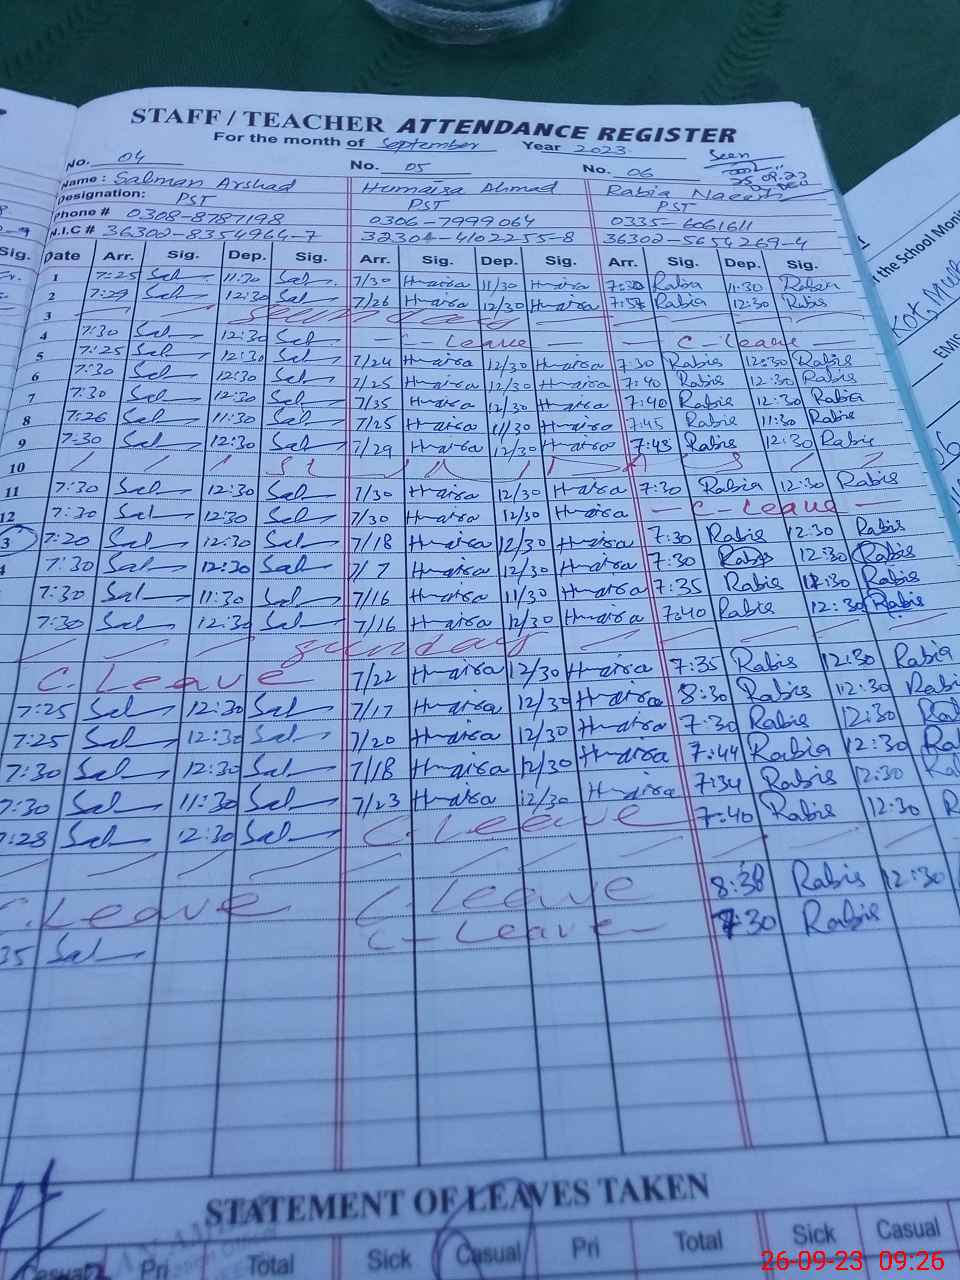 STAFF / TEACHER ATTENDANCE REGISTER
For the month of September Year 2023
No. 04 No. 05 No. 06 Seen
Name : Salman Arshad Humaisa Ahmad Rabia Naeem
Designation: PST PST PST
Phone # 0308-8787198 0306-7999064 0335-6061611
N.I.C # 36302-8354964-7 32304-4102255-8 36302-5654269-4
Sig. Date Arr. Sig. Dep. Sig. Arr. Sig. Dep. Sig. Arr. Sig. Dep. Sig.
1 7:25 Sal 11:30 Sal 7/30 Humaisa 11/30 Humaisa 7:30 Rabia 11:30 Rabia
2 7:29 Sal 12:30 Sal 7/26 Humaisa 12/30 Humaisa 7:57 Rabia 12:30 Rabis
3 Sunday
4 7:30 Sal 12:30 Sal - C - Leave - - C - Leave -
5 7:25 Sal 12:30 Sal 7/24 Humaisa 12/30 Humaisa 7:30 Rabis 12:30 Rabis
6 7:30 Sal 12:30 Sal 7/25 Humaisa 12/30 Humaisa 7:40 Rabis 12:30 Rabis
7 7:30 Sal 12:30 Sal 7/35 Humaisa 12/30 Humaisa 7:40 Rabis 12:30 Rabia
8 7:26 Sal 11:30 Sal 7/25 Humaisa 11/30 Humaisa 7:45 Rabis 11:30 Rabis
9 7:30 Sal 12:30 Sal 7/29 Humaisa 12/30 Humaisa 7:43 Rabis 12:30 Rabis
10
11 7:30 Sal 12:30 Sal 7/30 Humaisa 12/30 Humaisa 7:30 Rabia 12:30 Rabis
12 7:30 Sal 12:30 Sal 7/30 Humaisa 12/30 Humaisa - C - Leave -
3 7:20 Sal 12:30 Sal 7/18 Humaisa 12/30 Humaisa 7:30 Rabis 12:30 Rabis
4 7:30 Sal 12:30 Sal 7/7 Humaisa 12/30 Humaisa 7:30 Rabis 12:30 Rabis
7:30 Sal 11:30 Sal 7/16 Humaisa 11/30 Humaisa 7:35 Rabis 11:30 Rabis
7:30 Sal 12:30 Sal 7/16 Humaisa 12/30 Humaisa 7:40 Rabis 12:30 Rabis
Sunday
C. Leave 7/22 Humaisa 12/30 Humaisa 7:35 Rabis 12:30 Rabia
7:25 Sal 12:30 Sal 7/17 Humaisa 12/30 Humaisa 8:30 Rabis 12:30 Rabi
7:25 Sal 12:30 Sal 7/20 Humaisa 12/30 Humaisa 7:30 Rabis 12:30 Ra
7:30 Sal 12:30 Sal 7/18 Humaisa 12/30 Humaisa 7:44 Rabia 12:30 Ra
7:30 Sal 11:30 Sal 7/23 Humaisa 12/30 Humaisa 7:34 Rabis 12:30 Ra
7:28 Sal 12:30 Sal C. Leave 7:40 Rabis 12:30 R
C. Leave C. Leave 8:38 Rabis 12:30
35 Sal C - Leave 7:30 Rabis
STATEMENT OF LEAVES TAKEN
Casual Pri Total Sick Casual Pri Total Sick Casual
f the School Moni
EMIS
26-09-23 09:26